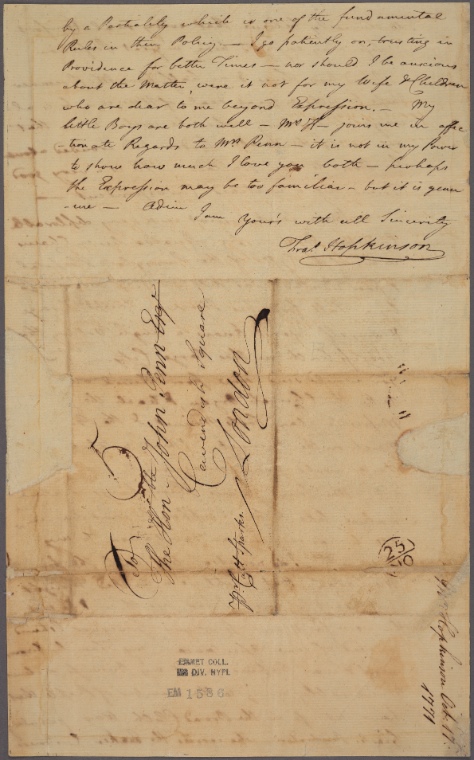 by a Partiality which is one of the fundamental
Rules in their Policy. — I go patiently on, trusting in
Providence for better Times — nor should I be anxious
about the Matter, were it not for my Wife & Children
who are dear to me beyond Expression. — My
little Boys are both well — Mrs H— joins me in affec
-tionate Regards to Mrs Penn — it is not in my Power
to show how much I love you both — perhaps
the Expression may be too familiar — but it is genu
-ine — Adieu
I am Yours with all Sincerity
Fras Hopkinson
To
The Honble John Penn Esqr
Cavendish Square
London
25
EMMET COLL.
MS DIV. NYPL
EM 1586
Hopkinson Oct
1771